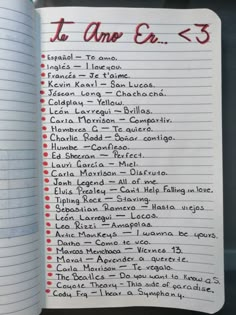 te Amo En... <3
Español — Te amo.
Inglés — I love you.
Francés — Je t'aime.
Kevin Kaarl — San Lucas.
Jesse Long — Chachachá.
Coldplay — Yellow.
León Larregui — Brillas.
Carla Morrison — Compartir.
Hombres G — Te quiero.
Charlie Rodd — Soñar contigo.
Humbe — Confieso.
Ed Sheeran — Perfect.
Lauri García — Miel.
Carla Morrison — Disfruto.
Jonh Legend — All of me.
Elvis Presley — Can't Help Falling in love.
Tipling Rock — Staring.
Sebastian Romero — Hasta viejos
León Larregui — Locos.
Leo Rizzi — Amapolas.
Artic Monkeys — I wanna be yours.
Daths — Como te veo.
Marcos Menchaca — Viernes 13.
Morat — Aprender a quererte.
Carla Morrison — Te regalo.
The Beatles — Do you want to know a S.
Coyote Theory — This side of paradise.
Cody Fry — I hear a Symphony.